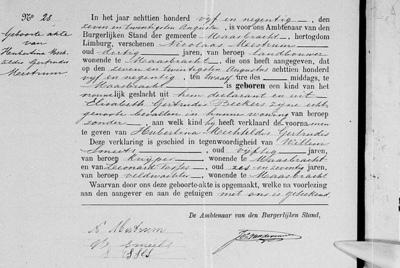 No 28.
Geboorte akte
van
Hubertina Mech-
tildis Gertrudis
Meestrum
In het jaar achttien honderd vijf en negentig, den
zeven en twintigsten Augustus, is voor ons Ambtenaar van den
Burgerlijken Stand der gemeente Maasbracht, hertogdom
Limburg, verschenen Nicolaas Meestrum
oud dertig jaren, van beroep landbouwer
wonende te Maasbracht, die ons heeft aangegeven, dat
op den zeven en twintigsten Augustus achttien honderd
vijf en negentig, ten twaalf ure des middags, te
Maasbracht is geboren een kind van het
vrouwelijk geslacht uit hem declarant en uit
Elisabeth Gertrudis Beckers zijne echt-
genoote bevallen in hunne woning van beroep
zonder, aan welk kind hij heeft verklaard de voorna
te geven van Hubertina Mechtildis Gertrudis
Deze verklaring is geschied in tegenwoordigheid van Willem
Smeets, oud vijftig jaren,
van beroep kuiper, wonende te Maasbracht
en van Leonard, oud zes en zeventig jaren,
van beroep veldwachter, wonende te Maasbracht
Waarvan door ons deze geboorte-akte is opgemaakt, welke na voorlezing
aan den aangever en aan de getuigen met ons is geteekend.
De Ambtenaar van den Burgerlijken Stand,
N. Mestrum
W Smeets